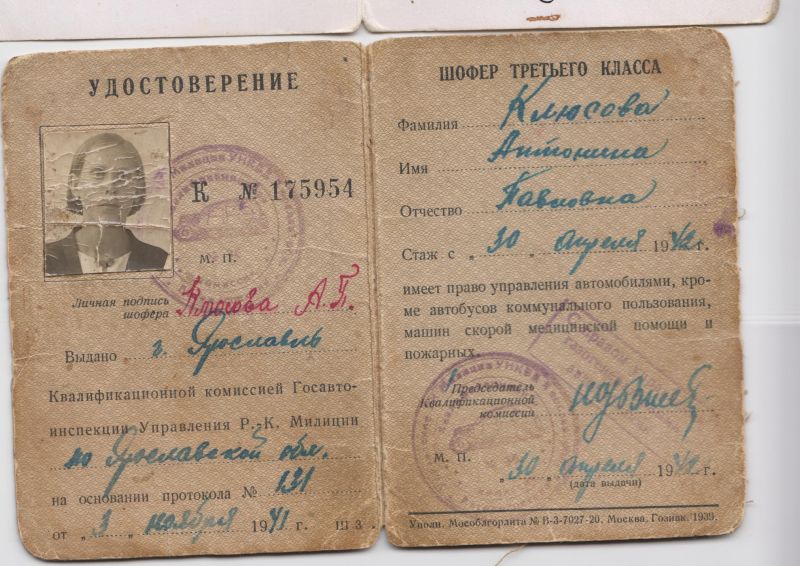 УДОСТОВЕРЕНИЕ
К № 175954
М. П.
Личная подпись
шофера Клюсова А.П.
Выдано г. Ярославль
Квалификационной комиссией Госавто-
инспекции Управления Р.-К. Милиции
по Ярославской обл.
на основании протокола № 131
от „3„ ноября 1941 г. Ш 3
ШОФЕР ТРЕТЬЕГО КЛАССА
Фамилия Клюсова
Имя Антонина
Отчество Павловна
Стаж с „30„ апреля 1942 г.
имеет право управления автомобилями, кро-
ме автобусов коммунального пользования,
машин скорой медицинской помощи и
пожарных.
Председатель
Квалификационной
комиссий
М. П. „30„ апреля 1942 г.
(дата выдачи)
Уполн. Мособлгорлита № В-3-7027-20. Москва. Гознак. 1939.